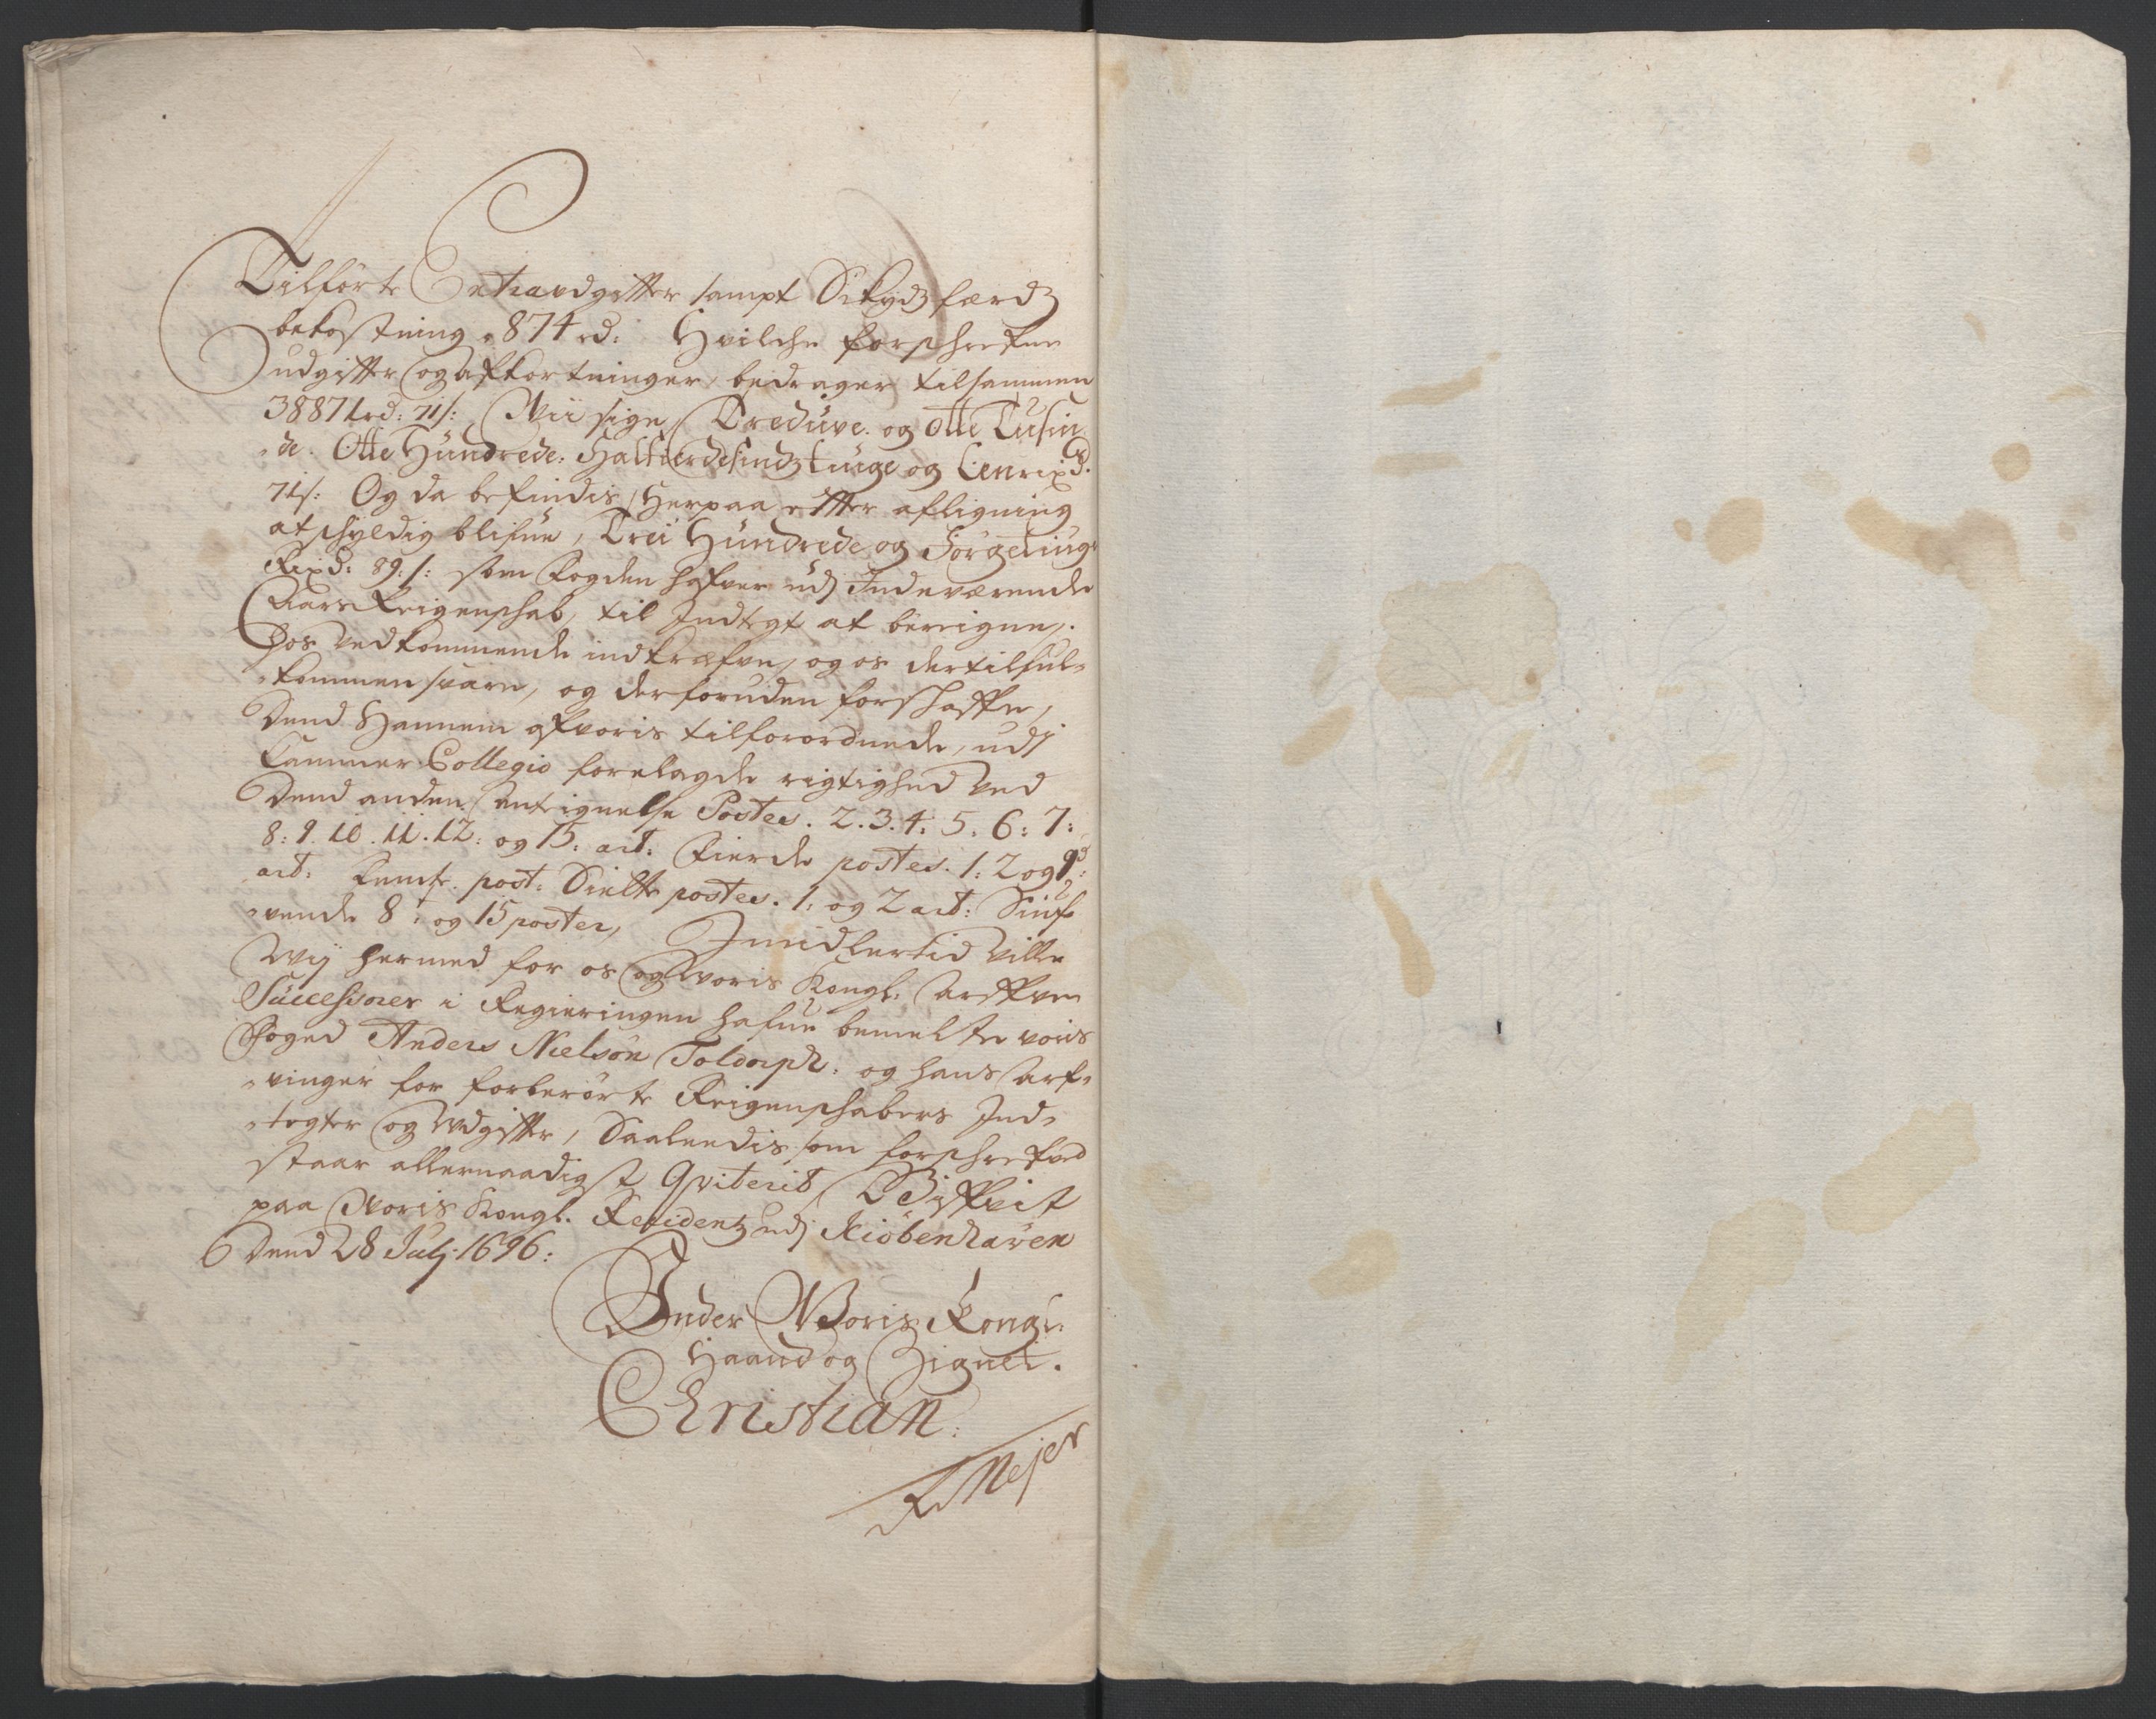 Tilførte Extraudgiffter sampt Skydtzfærdtz
bekostning 874 rd: Hvilche forschrefne
udgiffter og afkortninger, bedrager tilsammen
38871 rd: 71 s: Wii sige, Tredüve og otte Tüsin-
de. Otte Hündrede. Halffierdesindztiuge og Een rixd.
71 s: Og da befindis herpaa effter afligning
at schyldig blifue, Treii Hündrede og Förgetiuge
Rixd: 89: s: som Fogden hafver udj Indeværende
Aars Reigenschab, til Indtegt at bereigne,
hos vedkommende indkræfve, og os dertil ful-
kommen svare, og derforuden forschaffe,
dend Hannem af voris tilforordnede, udj
Cammer Collegio forelagde rigtighed ved
dend anden Antegnelse Postes. 2. 3. 4: 5. 6: 7:
8: 9. 10. 11. 12: og 15: act: Fierde postes. 1: 2 og 9d:
act: Femte post: Siette postes. 1: og 2 act: Siuf-
vende 8: og 15 poster, Imidlertid ville
Wij hermed for os og Woris Kongl: Arffve
Successorer i Regieringen hafue bemelte voris
Foged Anders Nielsön Toldorph: og hans Arf-
vinger for forberørte Reigenschabers Ind-
tegter og Udgiffter, Saaleedis som forschrefved
staar allernaadigst Qviterit, Giffvit
paa Woris Kongl. Residentz udj Kiöbenhaven
dend 28 Julij 1696:
Under Woris Kongl:
Haand og Signet.
Christian:
Mejer